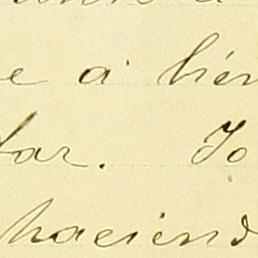 e á bien
tar. Yo
haciend